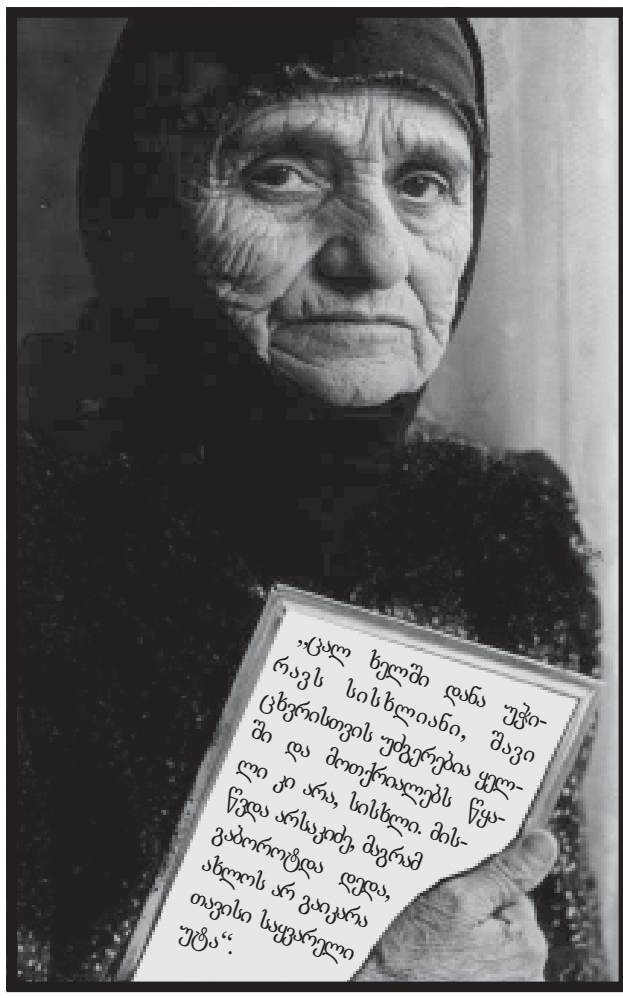 „ცალ ხელში დანა უჭი-
რავს სისხლიანი, შავი
ცხვრისთვის უძგერებია ყელ-
ში და მოთქრიალებს წყა-
ლი კი არა, სისხლი. მის-
წვდა არსაკიძე, მაგრამ
გაბოროტდა დედა,
ახლოს არ გაიკარა
თავისი საყვარელი
უტა“.